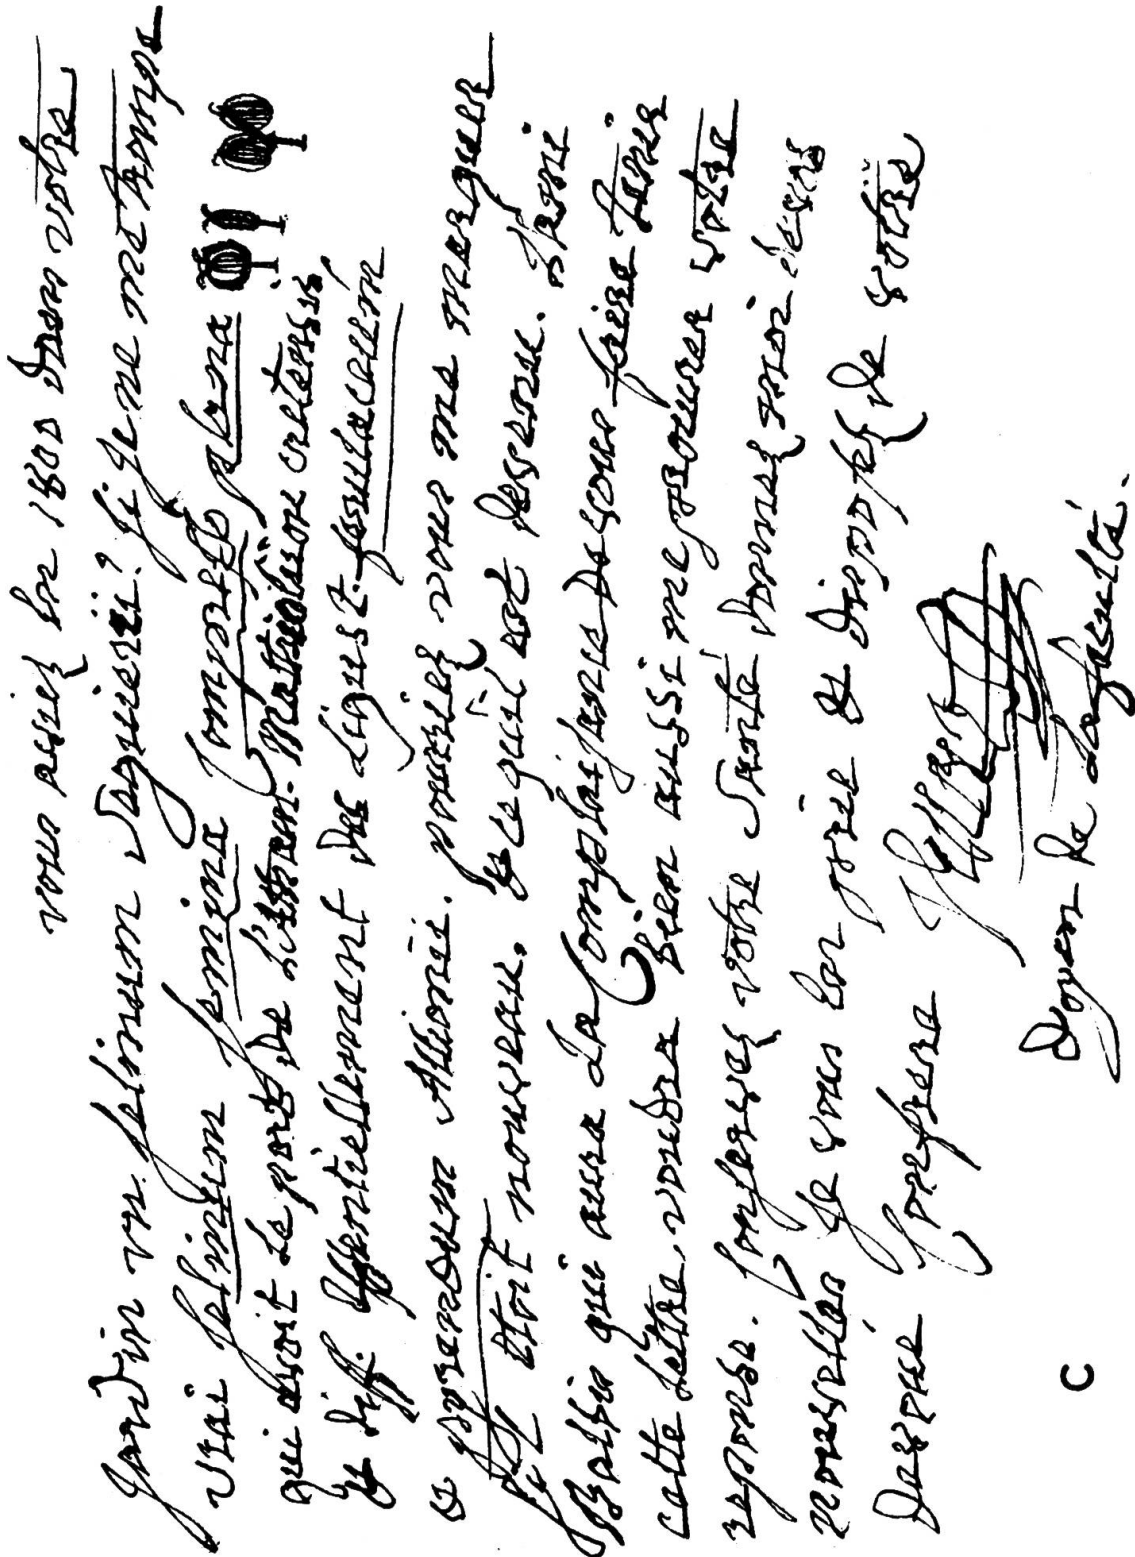 vous aviez en 1800 dans votre
jardin un selinum seguierii? si je ne me trompe
vrai selinum semina compressé plana
qui avoit le port de l'atham. Matthioli
et diff. essentiellement des Ligust.
et Allionii. pourriez vous me marquer
s'il etoit nouveau. et ce qu'il est devenu. l'ami
Balbis qui aura la Complaisance de vous faire tenir
cette lettre, voudra bien aussi me procurer votre
reponse. Conservez votre santé donnez moi de vos
nouvelles je vous en prie et disposez de votre
devoué Confrere
Doyen de la faculté.
C